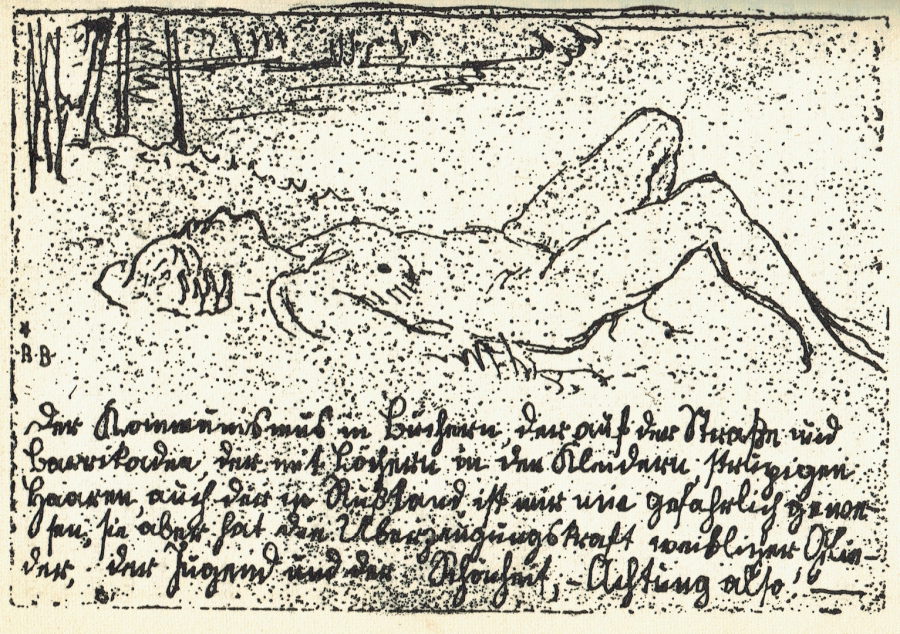 B·B
Der Kommunismus in Büchern, der auf der Straße und
Barrikaden, der mit Löchern in den Kleidern, strupigen
Haaren, auch der in Rußland, ist mir nie gefährlich gewe-
sen, sie aber hat die Überzeugungskraft weiblicher Glie-
der, der Jugend und der Schönheit, – Achtung also! —